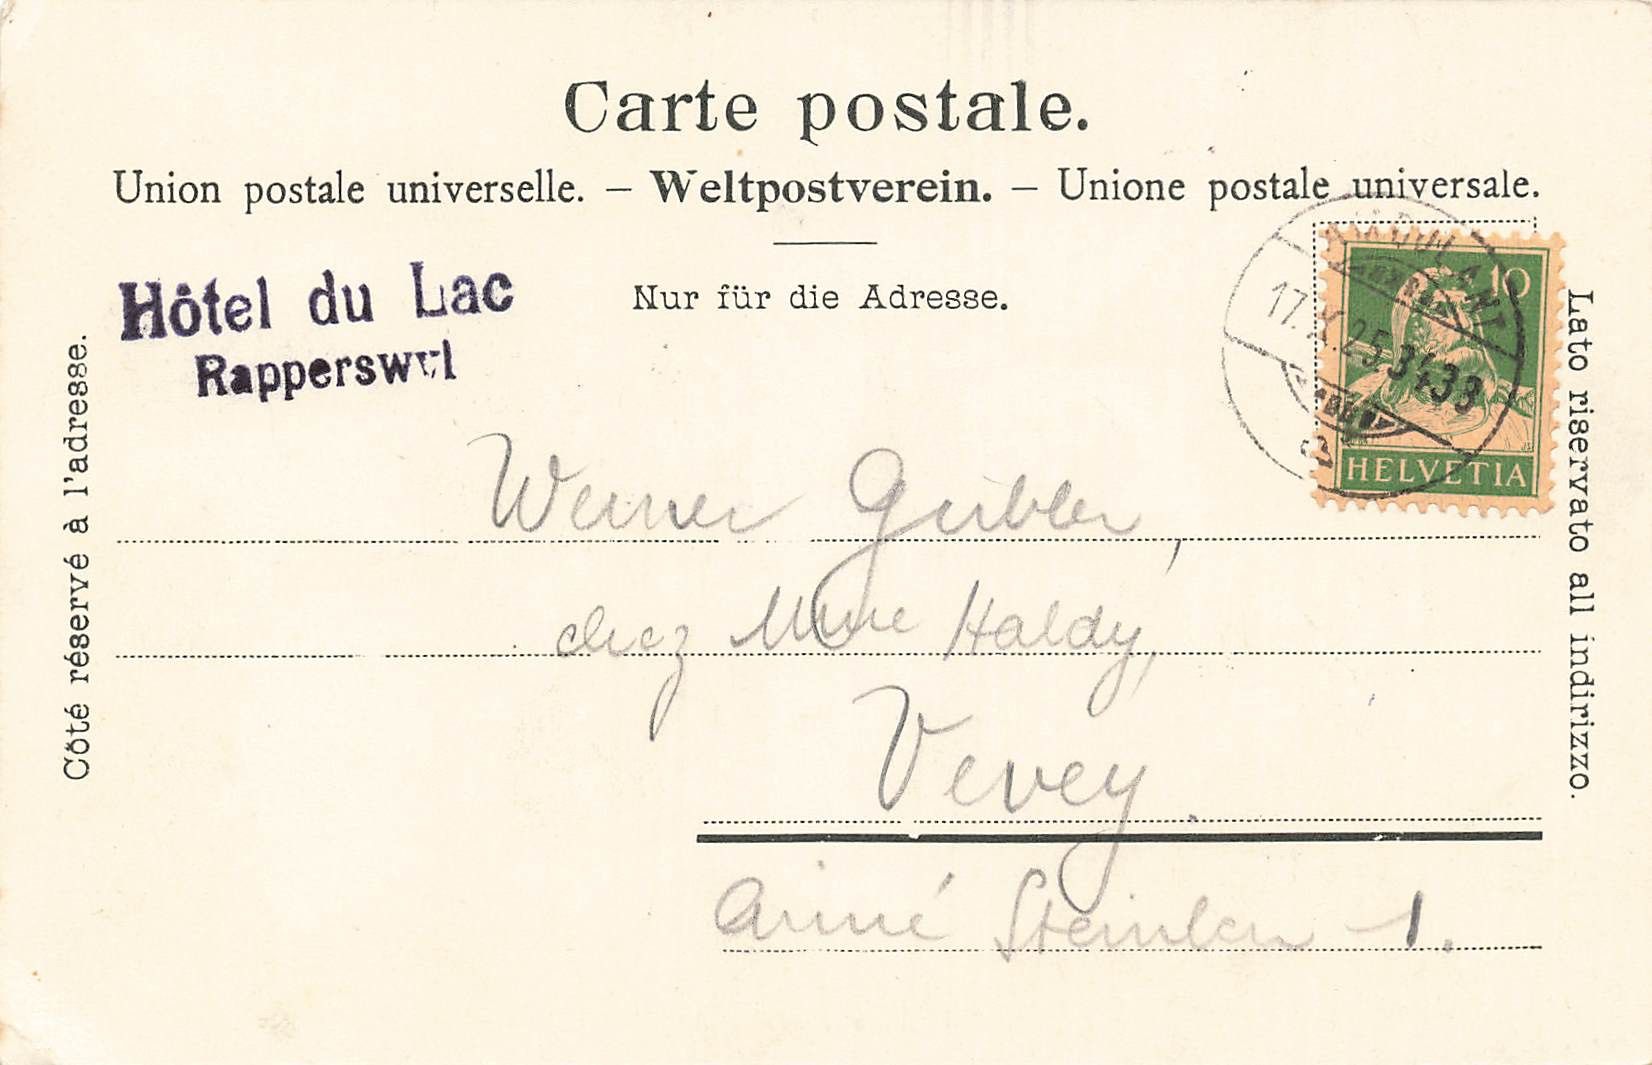 Carte postale.
Union postale universelle. – Weltpostverein. – Unione postale universale.
Nur für die Adresse.
Hôtel du Lac
Rapperswyl
Côté réservé à l'adresse.
Lato riservato all indirizzo.
10
HELVETIA
17. X. 25.
AMBULANT
Werner Gubler,
chez Mme Haldy,
Vevey.
Aimé Steinlen 1.